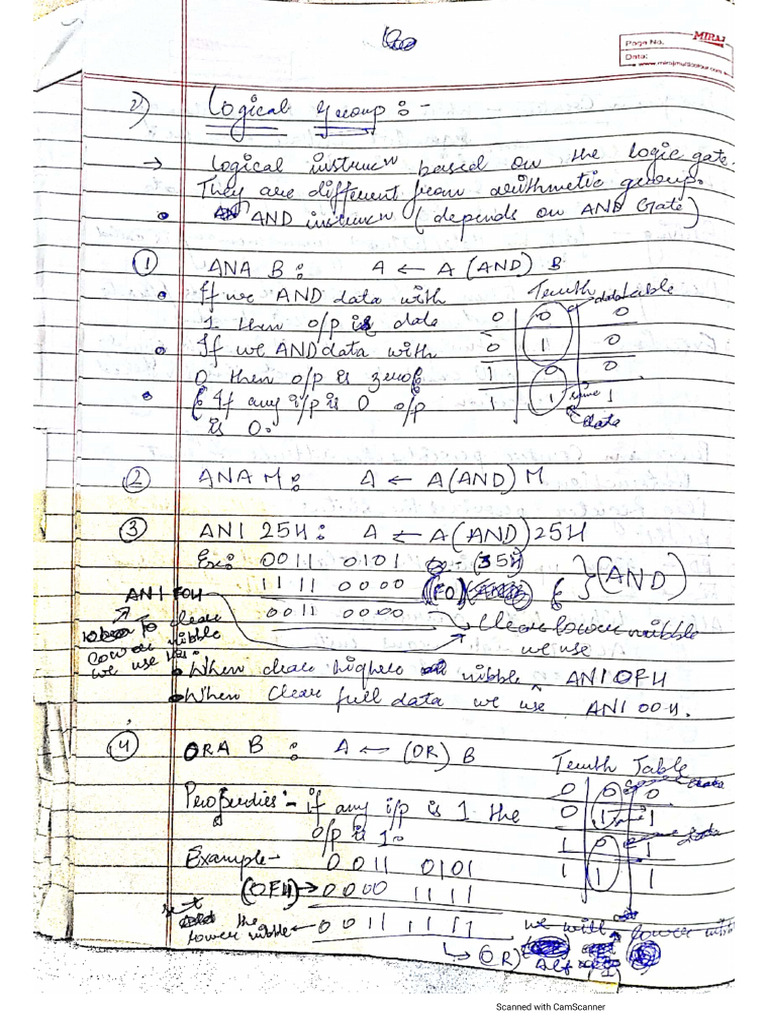 MIRAJ
Page No.
Date:
2) Logical Group :-
→ Logical instrucn based on the logic gate.
They are different from arithmetic group.
• AND instrucn (depends on AND Gate)
① ANA B : A ← A (AND) B
• If we AND data with
1 then o/p is data
• If we AND data with
0 then o/p is zero
• If any i/p is 0 o/p
is 0.
Truth table
0 0 0
0 1 0
1 0 0
1 1 1
data
② ANA M : A ← A (AND) M
③ ANI 25H : A ← A (AND) 25H
Ex: 0011 0101 (35H
1111 0000 (F0) } (AND)
0011 0000
ANI F0H
To clear
lower nibble
we use this
Clear lower nibble
we use
• When clear higher nibble ANI 0FH
• When clear full data we use ANI 00H.
④ ORA B : A ← (OR) B
Properties :- if any i/p is 1 the
o/p is 1.
Truth Table
0 0 0
0 1 1
1 0 1
1 1 1
Example -
0011 0101
(0FH) → 0000 1111
0011 1111
set the
lower nibble ←
we will
lower
↳ (OR)
Scanned with CamScanner